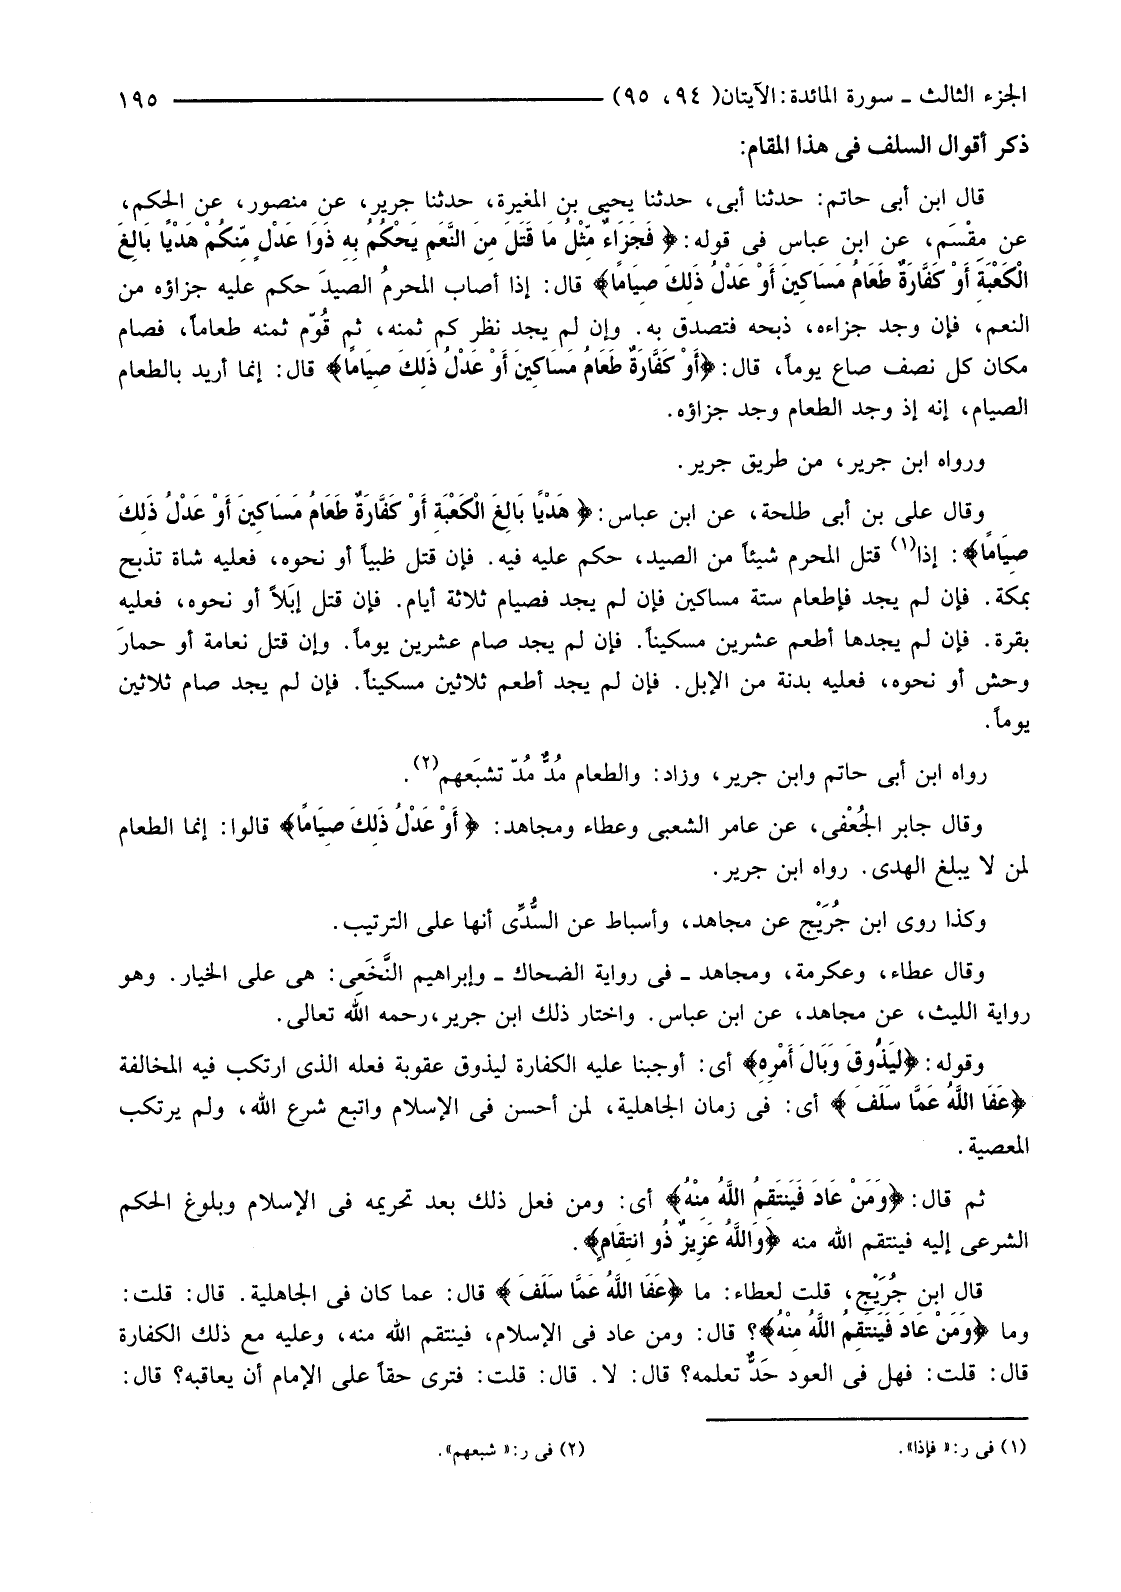 الجزء الثالث ـ سورة المائدة: الآيتان( ٩٤، ٩٥) ١٩٥
ذكر أقوال السلف فى هذا المقام:
قال ابن أبى حاتم: حدثنا أبى، حدثنا يحيى بن المغيرة، حدثنا جرير، عن منصور، عن الحكم،
عن مِقْسَم، عن ابن عباس فى قوله: ﴿ فَجَزَاءٌ مِّثْلُ مَا قَتَلَ مِنَ النَّعَمِ يَحْكُمُ بِهِ ذَوَا عَدْلٍ مِّنكُمْ هَدْيًا بَالِغَ
الْكَعْبَةِ أَوْ كَفَّارَةٌ طَعَامُ مَسَاكِينَ أَوْ عَدْلُ ذَلِكَ صِيَامًا﴾ قال: إذا أصاب المحرمُ الصيدَ حكم عليه جزاؤه من
النعم، فإن وجد جزاءه، ذبحه فتصدق به. وإن لم يجد نظر كم ثمنه، ثم قُوّم ثمنه طعاماً، فصام
مكان كل نصف صاع يوماً، قال: ﴿أَوْ كَفَّارَةٌ طَعَامُ مَسَاكِينَ أَوْ عَدْلُ ذَلِكَ صِيَامًا﴾ قال: إنما أريد بالطعام
الصيام، إنه إذ وجد الطعام وجد جزاؤه.
ورواه ابن جرير، من طريق جرير.
وقال على بن أبى طلحة، عن ابن عباس: ﴿ هَدْيًا بَالِغَ الْكَعْبَةِ أَوْ كَفَّارَةٌ طَعَامُ مَسَاكِينَ أَوْ عَدْلُ ذَلِكَ
صِيَامًا﴾: إذا(١) قتل المحرم شيئاً من الصيد، حكم عليه فيه. فإن قتل ظبياً أو نحوه، فعليه شاة تذبح
بمكة. فإن لم يجد فإطعام ستة مساكين فإن لم يجد فصيام ثلاثة أيام. فإن قتل إبَلاً أو نحوه، فعليه
بقرة. فإن لم يجدها أطعم عشرين مسكيناً. فإن لم يجد صام عشرين يوماً. وإن قتل نعامة أو حمارَ
وحش أو نحوه، فعليه بدنة من الإبل. فإن لم يجد أطعم ثلاثين مسكيناً. فإن لم يجد صام ثلاثين
يوماً.
رواه ابن أبى حاتم وابن جرير، وزاد: والطعام مُدٌّ مُدّ تشبَعهم(٢).
وقال جابر الجُعْفى، عن عامر الشعبى وعطاء ومجاهد: ﴿ أَوْ عَدْلُ ذَلِكَ صِيَامًا﴾ قالوا: إنما الطعام
لمن لا يبلغ الهدى. رواه ابن جرير.
وكذا روى ابن جُرَيْج عن مجاهد، وأسباط عن السُّدِّى أنها على الترتيب.
وقال عطاء، وعكرمة، ومجاهد ـ فى رواية الضحاك ـ وإبراهيم النَّخَعِى: هى على الخيار. وهو
رواية الليث، عن مجاهد، عن ابن عباس. واختار ذلك ابن جرير،رحمه الله تعالى.
وقوله: ﴿لِيَذُوقَ وَبَالَ أَمْرِهِ﴾ أى: أوجبنا عليه الكفارة ليذوق عقوبة فعله الذى ارتكب فيه المخالفة
﴿عَفَا اللَّهُ عَمَّا سَلَفَ ﴾ أى: فى زمان الجاهلية، لمن أحسن فى الإسلام واتبع شرع الله، ولم يرتكب
المعصية.
ثم قال: ﴿وَمَنْ عَادَ فَيَنتَقِمُ اللَّهُ مِنْهُ﴾ أى: ومن فعل ذلك بعد تحريمه فى الإسلام وبلوغ الحكم
الشرعى إليه فينتقم الله منه ﴿وَاللَّهُ عَزِيزٌ ذُو انتِقَامٍ﴾.
قال ابن جُرَيْج، قلت لعطاء: ما ﴿عَفَا اللَّهُ عَمَّا سَلَفَ ﴾ قال: عما كان فى الجاهلية. قال: قلت:
وما ﴿وَمَنْ عَادَ فَيَنتَقِمُ اللَّهُ مِنْهُ﴾؟ قال: ومن عاد فى الإسلام، فينتقم الله منه، وعليه مع ذلك الكفارة
قال: قلت: فهل فى العود حَدٌّ تعلمه؟ قال: لا. قال: قلت: فترى حقاً على الإمام أن يعاقبه؟ قال:
(١) فى ر: « فإذا». (٢) فى ر: « شبعهم».